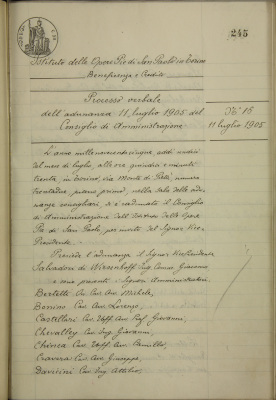 245
Istituto delle Opere Pie di San Paolo in Torino
Beneficenza e Credito
Processo verbale
dell'adunanza 11 luglio 1905 del
Consiglio di Amministrazione
N° 16
11 luglio 1905
L'anno millenovecentocinque addì undici
del mese di luglio, alle ore quindici e minuti
trenta, in Torino, via Monte di Pietà, numero
trentadue, piano primo, nella sala delle adu-
nanze consigliari, si è radunato il Consiglio
di Amministrazione dell'Istituto delle Opere
Pie di San Paolo, per invito del Signor Vice
Presidente.
Presiede l'adunanza il Signor Vicepresidente
Salvadori di Wiesenhoff Ing. Conte Giacomo
e sono presenti i Signori Amministratori
Bertetti Cav. Avv. Michele,
Bonino Cav. Avv. Lorenzo,
Castellari Cav. Uff. Avv. Prof. Giovanni,
Chevalley Cav. Ing. Giovanni,
Chiesa Cav. Uff. Avv. Camillo,
Cravero Cav. Avv. Giuseppe,
Davicini Cav. Ing. Attilio,